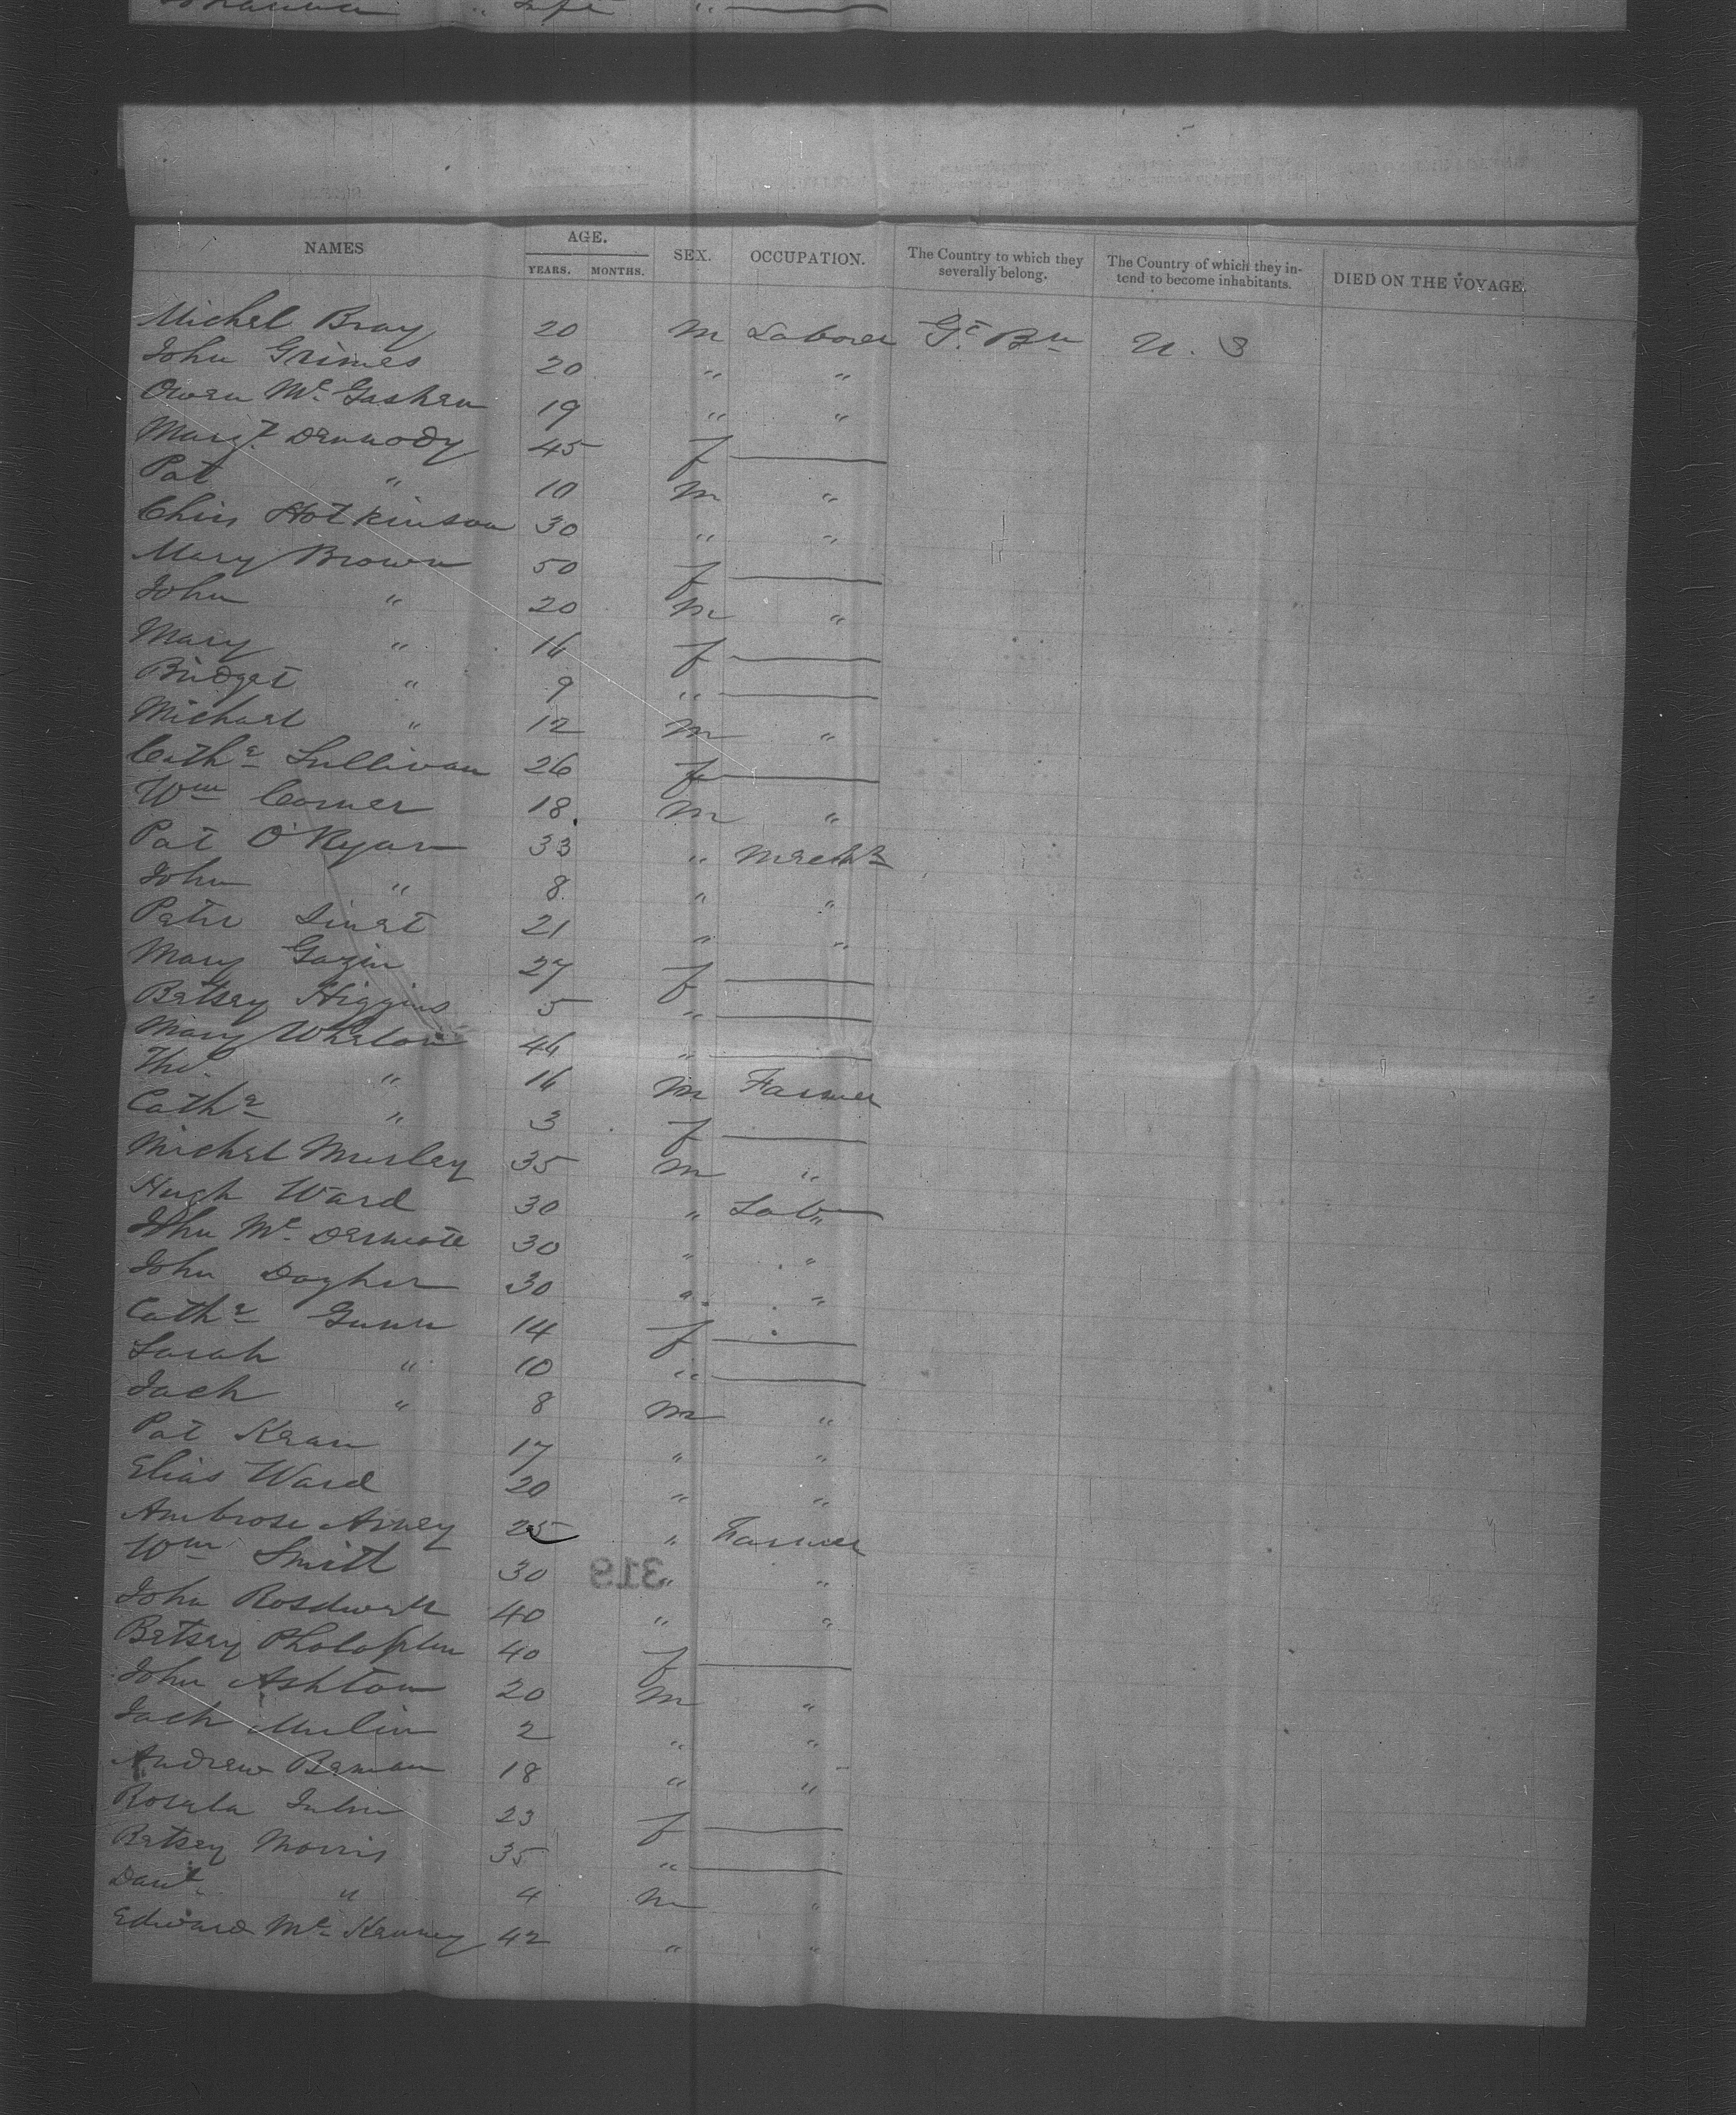 " Wife " —
NAMES AGE. YEARS. MONTHS. SEX. OCCUPATION. The Country to which they severally belong. The Country of which they intend to become inhabitants. DIED ON THE VOYAGE.
Michel Bray 20 m Laborer Gt. Bn U. S
John Grimes 20 " "
Owen Mc Gashen 19 " "
Margt. Dermody 45 f —
Pat " 10 m "
Chris Hotkinson 30 " "
Mary Brown 50 f —
John " 20 m "
Mary " 16 f —
Bridget " 9 " —
Michael " 12 m "
Cathe Sullivan 26 f —
Wm Corner 18 m "
Pat O'Ryan 33 "
John " 8 " "
Peter 21 " "
Mary 27 f —
Betsey Higgins 5 " —
Mary Whelon 46 " —
Tho. " 16 m Farmer
Cathe " 3 f —
Michel Murley 35 m "
Hugh Ward 30 " Lab
John Mc Dermote 30 " "
John Dagher 30 " "
Cathe Gunn 14 f —
Sarah " 10 " —
Jack " 8 m "
Pat Kean 17 " "
Elias Ward 20 " "
Ambrose 25 " Farmer
Wm Smith 30 " "
319
John 40 " "
Betsey 40 f —
John Ashton 20 m "
Jack Mulin 2 " "
Andrew Beman 18 " "
23 f —
Betsey Morris 35 " —
Danl. " 4 m "
Edward Mc Kenney 42 " "